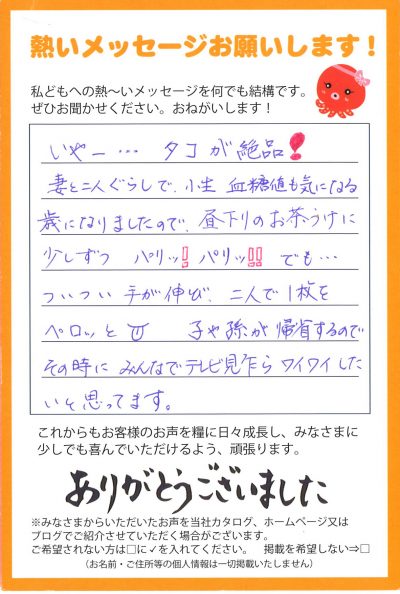 熱いメッセージお願いします！
私どもへの熱〜いメッセージを何でも結構です。
ぜひお聞かせください。おねがいします！
いやー… タコが絶品！
妻と二人ぐらしで、小生 血糖値も気になる
歳になりましたので、昼下りのお茶うけに
少しずつ パリッ！パリッ！！ でも…
ついつい 手が伸び、二人で1枚を
ペロッと 子や孫が帰省するので
その時に みんなでテレビ見乍ら ワイワイした
いと思ってます。
これからもお客様のお声を糧に日々成長し、みなさまに
少しでも喜んでいただけるよう、頑張ります。
ありがとうございました
※みなさまからいただいたお声を当社カタログ、ホームページ又は
ブログでご紹介させていただく場合がございます。
ご希望されない方は□に✓を入れてください。 掲載を希望しない⇒□
（お名前・ご住所等の個人情報は一切掲載いたしません）